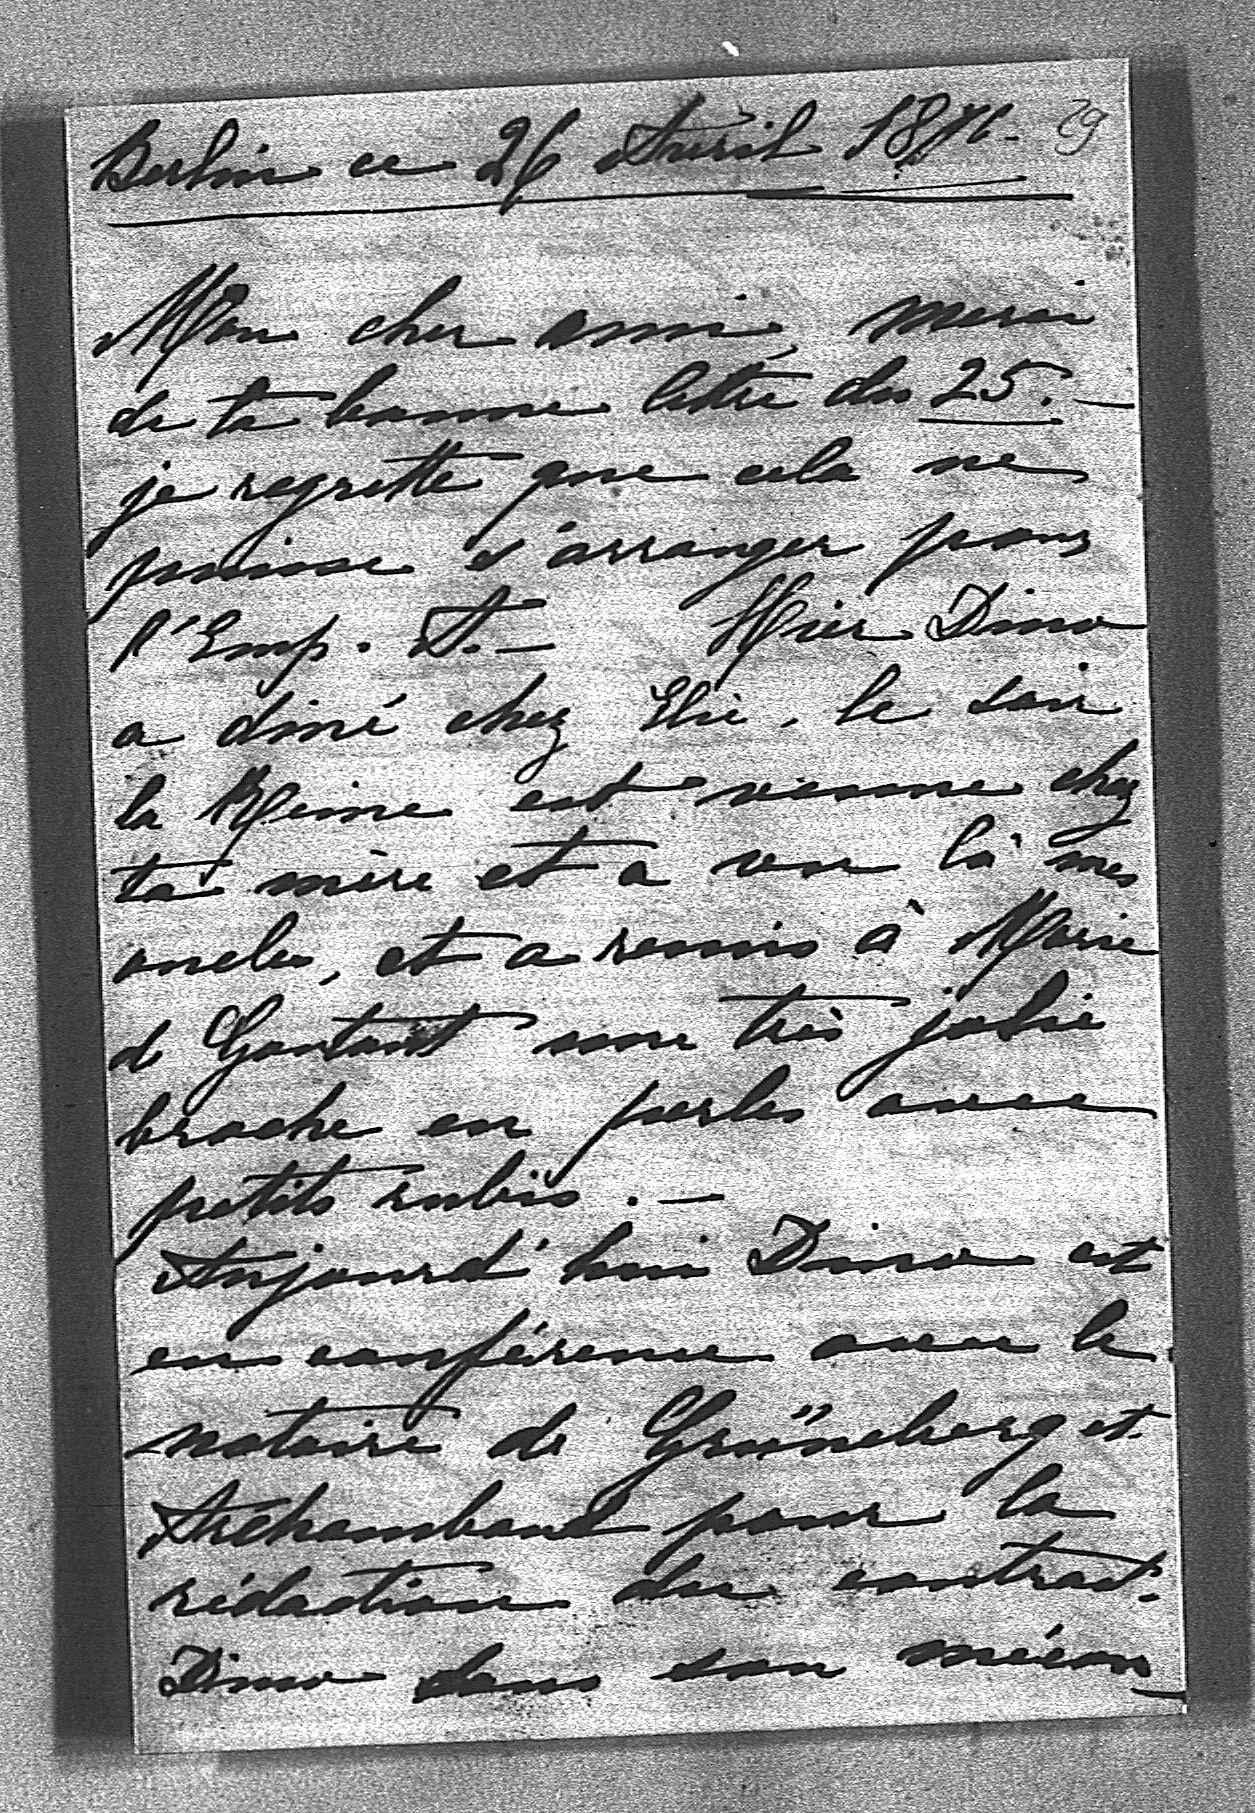 Berlin ce 26 Avril 1876. 29
Mon cher ami, merci
de ta bonne lettre du 25. —
je regrette que cela ne
puisse s'arranger pour
l'Emp. A. — Hier Dino
a diné chez Elie. le soir
la Reine est venue chez
ta mère et a vu là mes
oncles, et a remis à Marie
d Gontaut une très jolie
broche en perles avec
petits rubis. —
Aujourd'hui Dino est
en conférence avec le
notaire de Grüneberg et
Archambaud pour la
rédaction du contrat.
Dino dans son mécon_